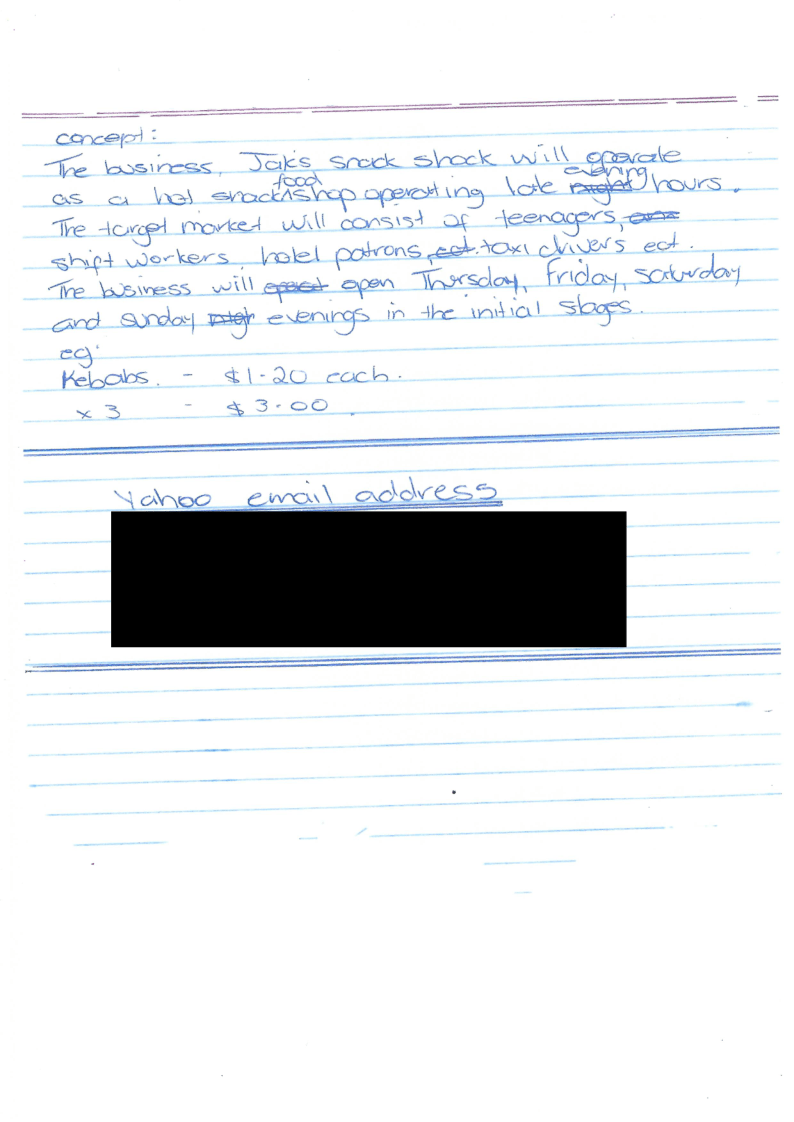 concept:
The business, Jak's snack shack will operate
as a hot snack food shop operating late evening hours.
The target market will consist of teenagers,
shift workers hotel patrons, ect. taxi drivers ect.
The business will open Thursday, Friday, Saturday
and sunday evenings in the initial stages.
eg:
Kebabs. - $1.20 each.
x 3 - $3.00.
Yahoo email address